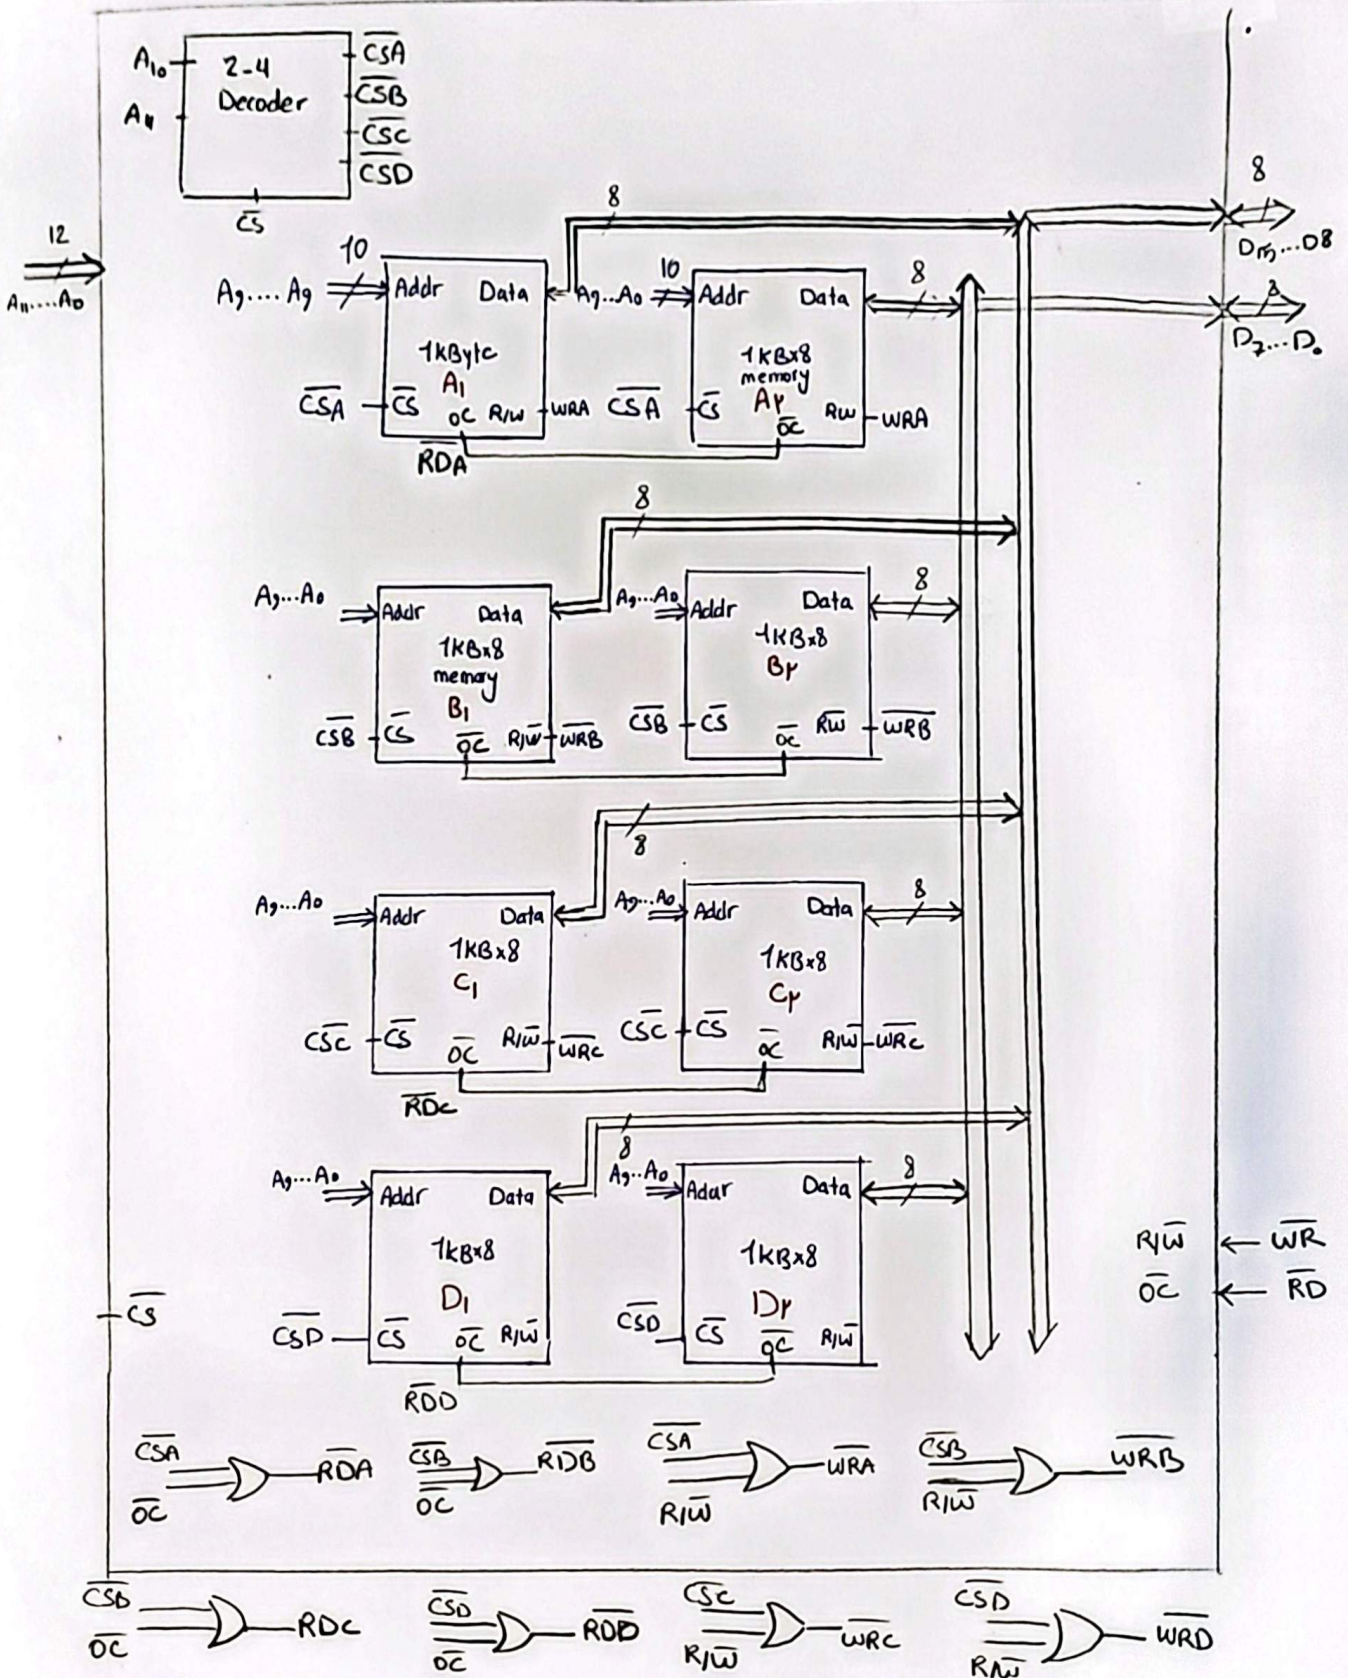 A10
2-4
Decoder
A11
C̅S̅A̅
C̅S̅B̅
C̅S̅C̅
C̅S̅D̅
C̅S̅
12
A11....A0
8
D15...D8
8
D7...D0
8
10
A9....A9
Addr Data
1KByte
A1
C̅S̅A̅ C̅S̅ OC R/W WRA
R̅D̅A̅
10
A9...A0
Addr Data
1KB×8
memory
A2
C̅S̅A̅ C̅S̅ O̅C̅ RW WRA
8
8
A9...A0
Addr Data
1KB×8
memory
B1
C̅S̅B̅ C̅S̅ O̅C̅ R/W̅ W̅R̅B̅
A9...A0
Addr Data
1KB×8
B2
C̅S̅B̅ C̅S̅ O̅C̅ R̅W̅ W̅R̅B̅
8
8
A9...A0
Addr Data
1KB×8
C1
CS̅C̅ C̅S̅ O̅C̅ R/W̅ W̅R̅C̅
R̅D̅C̅
A9...A0
Addr Data
1KB×8
C2
CS̅C̅ C̅S̅ O̅C̅ R/W̅ W̅R̅C̅
8
8
A9...A0
Addr Data
1KB×8
D1
C̅S̅D̅ C̅S̅ O̅C̅ R/W̅
R̅D̅D̅
A9...A0
Addr Data
1KB×8
D2
C̅S̅D̅ C̅S̅ O̅C̅ R/W̅
8
R/W̅ W̅R̅
O̅C̅ R̅D̅
C̅S̅
C̅S̅A̅
O̅C̅
R̅D̅A̅
C̅S̅B̅
O̅C̅
R̅D̅B̅
C̅S̅A̅
R/W̅
W̅R̅A̅
C̅S̅B̅
R/W̅
W̅R̅B̅
O̅C̅
RDC
C̅S̅D̅
O̅C̅
R̅D̅D̅
C̅S̅C̅
R/W̅
W̅R̅C̅
C̅S̅D̅
R/W̅
W̅R̅D̅